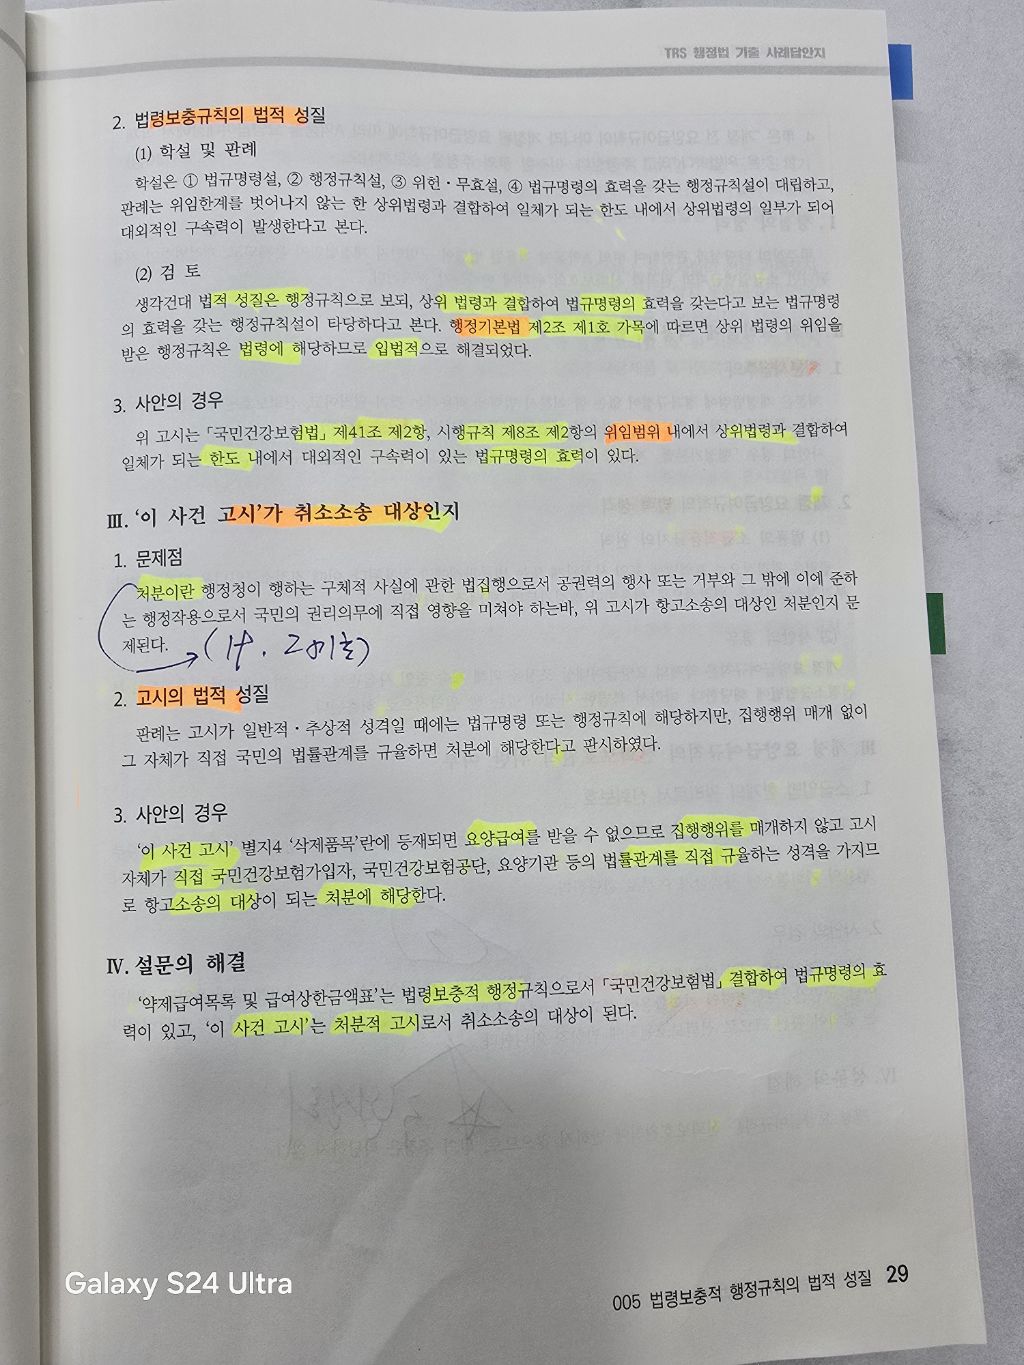 TRS 행정법 기출 사례답안지
2. 법령보충규칙의 법적 성질
(1) 학설 및 판례
학설은 ① 법규명령설, ② 행정규칙설, ③ 위헌·무효설, ④ 법규명령의 효력을 갖는 행정규칙설이 대립하고,
판례는 위임한계를 벗어나지 않는 한 상위법령과 결합하여 일체가 되는 한도 내에서 상위법령의 일부가 되어
대외적인 구속력이 발생한다고 본다.
(2) 검 토
생각건대 법적 성질은 행정규칙으로 보되, 상위 법령과 결합하여 법규명령의 효력을 갖는다고 보는 법규명령
의 효력을 갖는 행정규칙설이 타당하다고 본다. 행정기본법 제2조 제1호 가목에 따르면 상위 법령의 위임을
받은 행정규칙은 법령에 해당하므로 입법적으로 해결되었다.
3. 사안의 경우
위 고시는 「국민건강보험법」 제41조 제2항, 시행규칙 제8조 제2항의 위임범위 내에서 상위법령과 결합하여
일체가 되는 한도 내에서 대외적인 구속력이 있는 법규명령의 효력이 있다.
Ⅲ. '이 사건 고시'가 취소소송 대상인지
1. 문제점
처분이란 행정청이 행하는 구체적 사실에 관한 법집행으로서 공권력의 행사 또는 거부와 그 밖에 이에 준하
는 행정작용으로서 국민의 권리의무에 직접 영향을 미쳐야 하는바, 위 고시가 항고소송의 대상인 처분인지 문
제된다.
2. 고시의 법적 성질
판례는 고시가 일반적·추상적 성격일 때에는 법규명령 또는 행정규칙에 해당하지만, 집행행위 매개 없이
그 자체가 직접 국민의 법률관계를 규율하면 처분에 해당한다고 판시하였다.
3. 사안의 경우
'이 사건 고시' 별지4 '삭제품목'란에 등재되면 요양급여를 받을 수 없으므로 집행행위를 매개하지 않고 고시
자체가 직접 국민건강보험가입자, 국민건강보험공단, 요양기관 등의 법률관계를 직접 규율하는 성격을 가지므
로 항고소송의 대상이 되는 처분에 해당한다.
Ⅳ. 설문의 해결
'약제급여목록 및 급여상한금액표'는 법령보충적 행정규칙으로서 「국민건강보험법」 결합하여 법규명령의 효
력이 있고, '이 사건 고시'는 처분적 고시로서 취소소송의 대상이 된다.
Galaxy S24 Ultra
005 법령보충적 행정규칙의 법적 성질 29